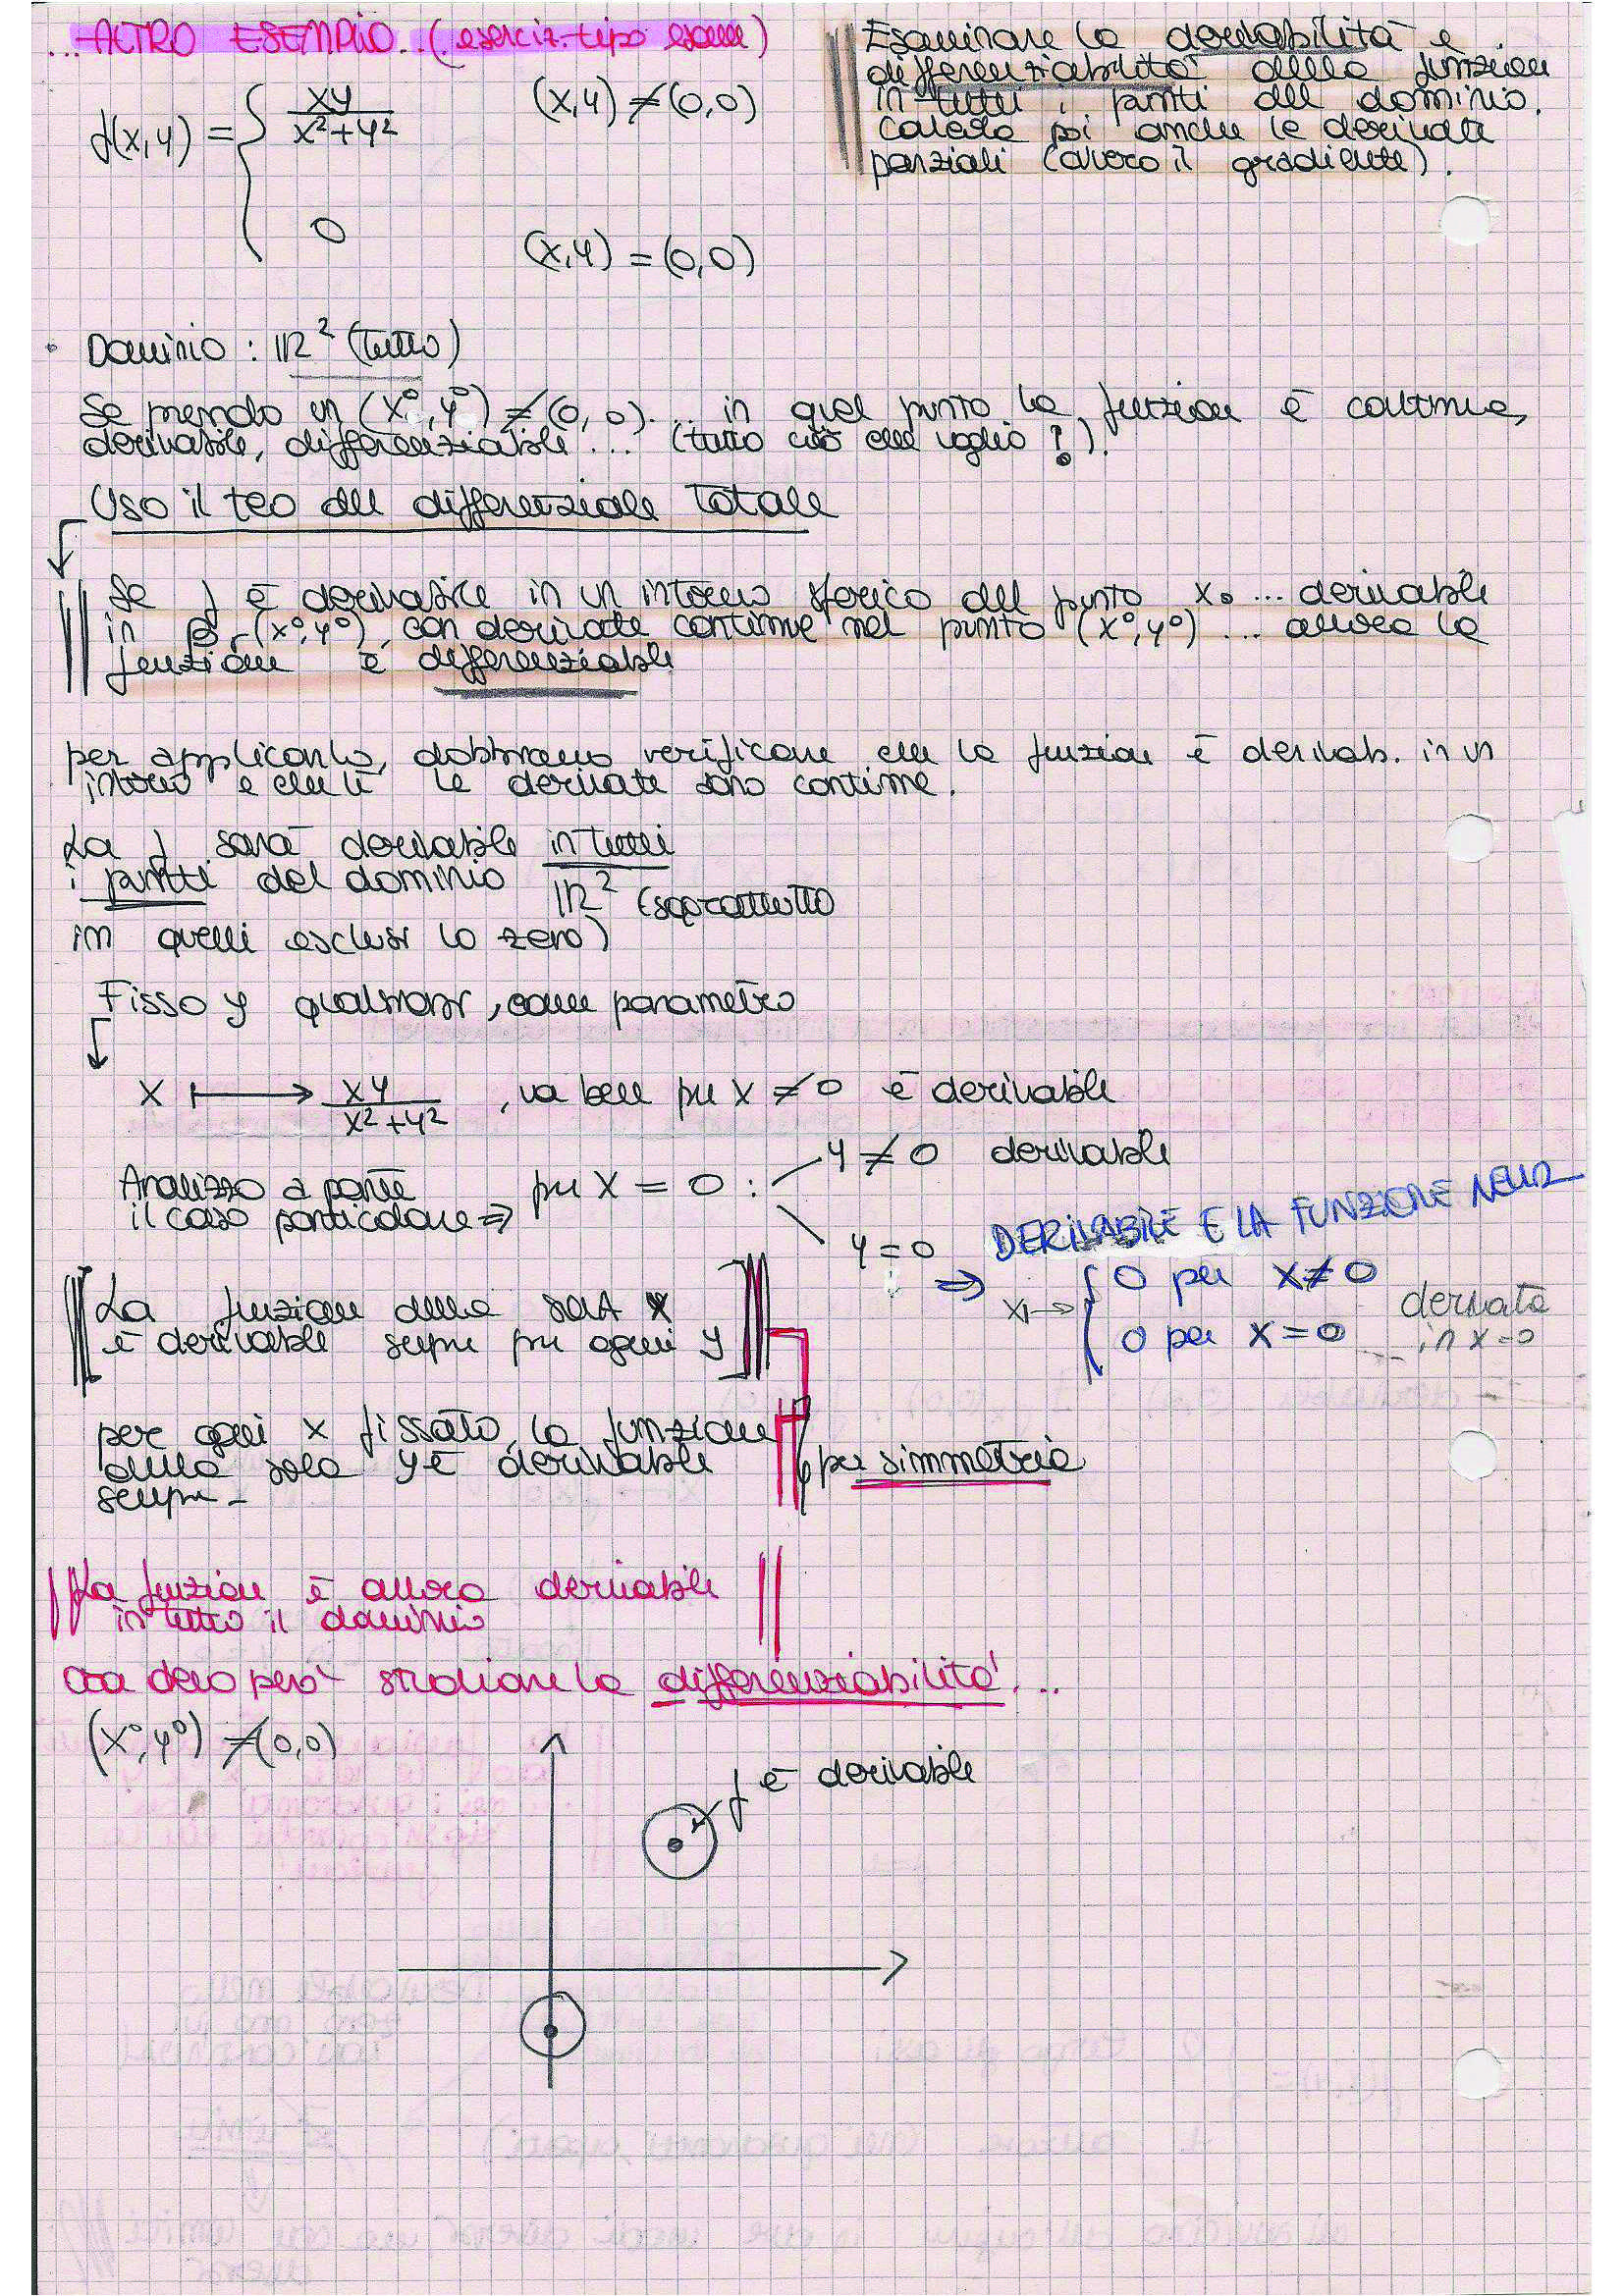 ...ALTRO ESEMPIO..(eserciz. tipo esame)
Esaminare la derivabilità e
differenziabilità della funzione
in tutti i punti del dominio.
calcola poi anche le derivate
parziali (ovvero il gradiente).
f(x,y) = { xy / x²+y² (x,y) ≠ (0,0)
0 (x,y) = (0,0)
• Dominio : IR² (tutto)
Se prendo un (x⁰,y⁰) ≠ (0,0)... in quel punto la funzione è continua,
derivabile, differenziabile... (tutto ciò che voglio!).
Uso il teo del differenziale totale
Se f è derivabile in un intorno sferico del punto x₀ ... derivabile
in Br(x⁰,y⁰), con derivate continue nel punto (x⁰,y⁰) ... allora la
funzione è differenziabile
per applicarlo, dobbiamo verificare che la funzione è derivab. in un
intorno e che lì le derivate sono continue.
La f sarà derivabile in tutti
i punti del dominio IR² (soprattutto
in quelli esclusi lo zero)
Fisso y qualsiasi, come parametro
x ↦ xy / x²+y² , va bene per x ≠ 0 è derivabile
Analizzo a parte
il caso particolare ⇒ per x = 0 :
y ≠ 0 derivabile
y = 0 DERIVABILE È LA FUNZIONE NULLA
⇒ x ↦ { 0 per x ≠ 0
0 per x = 0
derivata
in x=0
La funzione della sola x
è derivabile sempre per ogni y
per ogni x fissato, la funzione
della sola y è derivabile
sempre -
per simmetria
La funzione è allora derivabile
in tutto il dominio
Ora devo però studiare la differenziabilità...
(x⁰,y⁰) ≠ (0,0)
f è derivabile